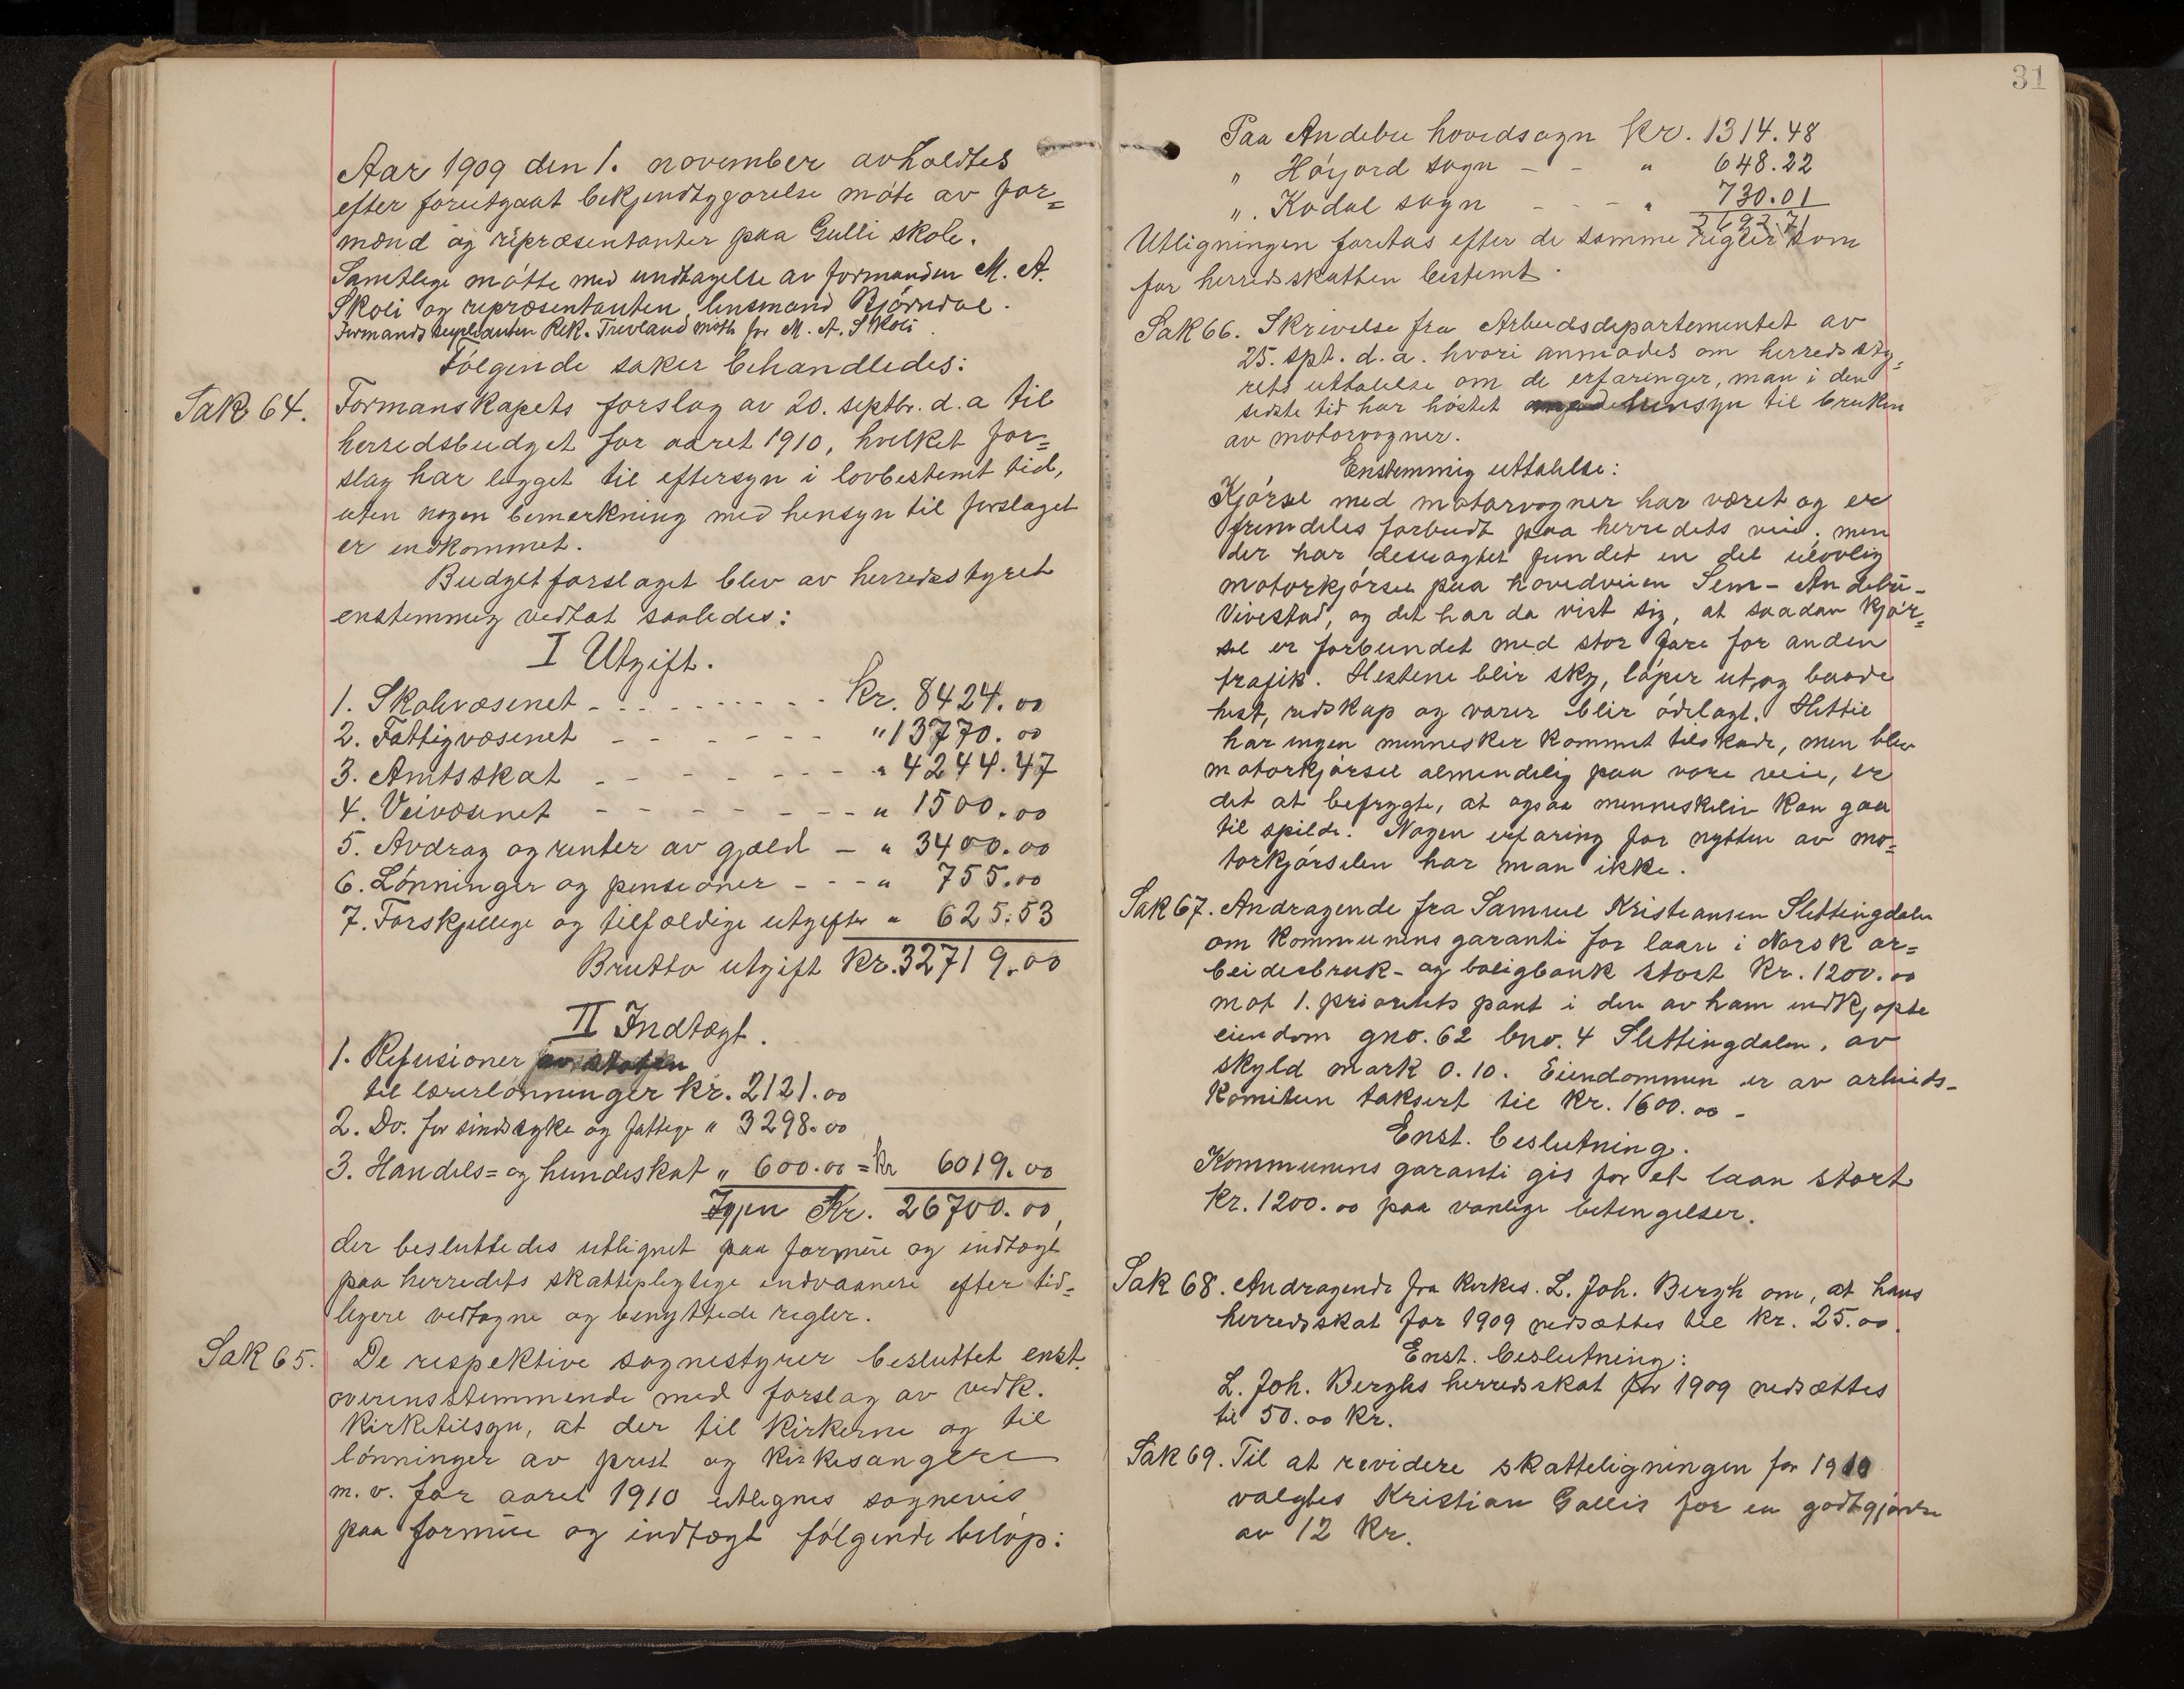 Aar 1909 den 1. november avholdtes
efter forutgaat bekjendtgjørelse møte av for=
mænd og repræsentanter paa Gulli skole.
Samtlige møtte med undtagelse av formanden M. A.
Skoli og repræsentanten, lensmand Bjørndal.
Formandssuplianten R.K. Trevland møtte for M. A. Skoli.
Følgende saker behandledes:
Sak 64. Formanskapets forslag av 20. septbr. d.a til
herredsbudget for aaret 1910, hvilket for=
slag har ligget til eftersyn i lovbestemt tid,
uten nogen bemerkning med hensyn til forslaget
er indkommet.
Budgetforslaget blev av herredsstyret
enstemmig vedtat saaledes:
I Utgift.
1. Skolevæsenet - - - - - - - - - kr. 8424.00
2. Fattigvæsenet - - - - - - " 13770.00
3. Amtsskat - - - - - - - " 4244.47
4. Veivæsenet - - - - - - - " 1500.00
5. Avdrag og renter av gjæld - " 3400.00
6. Lønninger og pensioner - - - " 755.00
7. Forskjellige og tilfældige utgifter " 625.53
Brutto utgift kr. 32719.00
II Indtægt.
1. Refusioner av staten
til lærerlønninger kr. 2121.00
2. Do. for sindssyke og fattige " 3298.00
3. Handels= og hundeskat " 600.00 = kr 6019.00
Igjen Kr. 26700.00,
der besluttedes utlignet paa formue og indtægt
paa herredets skattepligtige indvaanere efter tid=
ligere vedtagne og benyttede regler.
Sak 65. De respektive sognestyrer besluttet enst.
overensstemmende med forslag av vedk.
kirketilsyn, at der til kirkerne og til
lønninger av prest og kirkesangere
m. v. for aaret 1910 utlignes sognevis
paa formue og indtægt følgende beløp:
31
Paa Andebu hovedsogn Kr. 1314.48
" Høyjord sogn - - " 648.22
" Kodal sogn - - - " 730.01
2692.71
Utligningen foretas efter de samme regler som
for herredsskatten bestemt.
Sak 66. Skrivelse fra Arbeidsdepartementet av
25. spt. d. a. hvori anmodes om herredssty=
rets uttalelse om de erfaringer, man i den
sidste tid har høstet hensyn til bruken
av motorvogner.
Enstemmig uttalelse:
Kjørsel med motorvogner har været og er
fremdeles forbudt paa herredets veie; men
der har desuagtet fundet en del ulovlig
motorkjørsel paa hovedveien Sem - Andebu -
Vivestad, og det har da vist sig, at saadan kjør=
sel er forbundet med stor fare for anden
trafik. Hestene blir sky, løper ut, og baade
hest, redskap og varer blir ødelagt. Hittil
har ingen mennesker kommet tilskade, men blev
motorkjørsel almindelig paa vore veie, er
det at befrygte, at ogsaa menneskeliv kan gaa
til spilde. Nogen erfaring for nytten av mo=
torkjørselen har man ikke.
Sak 67. Andragende fra Samuel Kristiansen Slettingdalen
om kommunens garanti for laan i Norsk ar=
beidesbruk- og boligbank stort Kr. 1200.00
mot 1. prioritets pant i den av ham indkjøpte
eiendom gno. 62 bno. 4 Slettingdalen, av
skyld mark 0.10. Eiendommen er av arbeids-
komiteen taksert til Kr. 1600.00 -
Enst. beslutning.
Kommunens garanti gis for et laan stort
Kr. 1200.00 paa vanlige betingelser.
Sak 68. Andragende fra kirkes. L. Joh. Bergh om, at hans
herredsskat for 1909 nedsættes til kr. 25.00.
Enst. beslutning:
L. Joh. Berghs herredsskat for 1909 nedsættes
til 50.00 kr.
Sak 69. Til at revidere skatteligningen for 1910
valgtes Kristian Gallis for en godtgjørelse
av 12 kr.